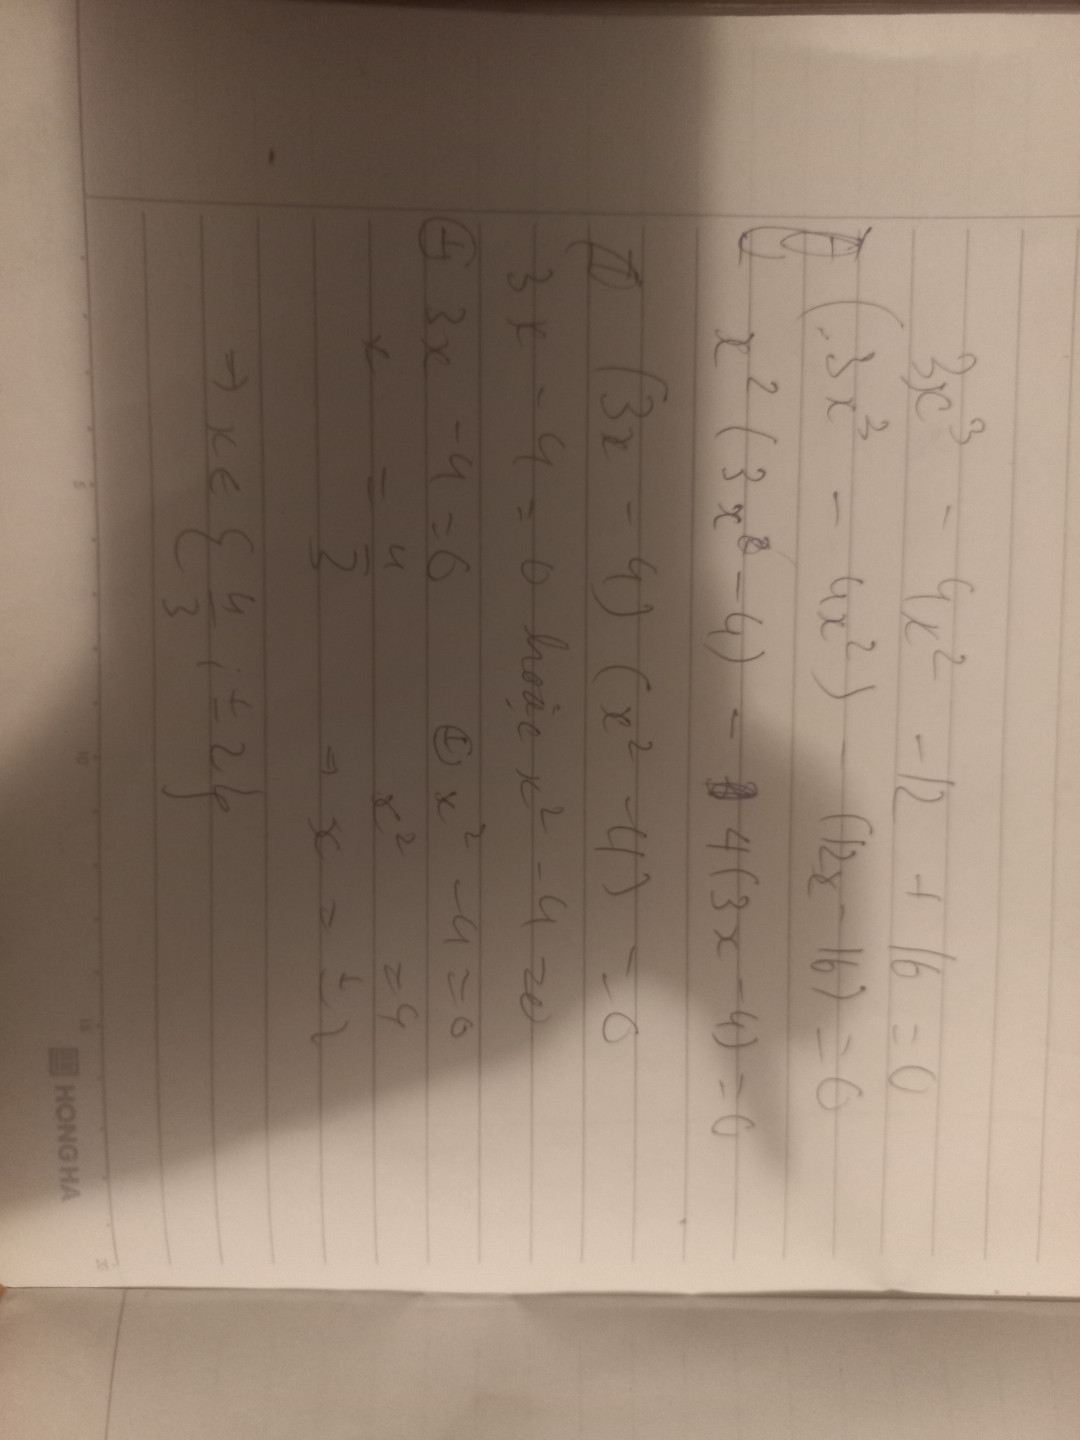 3x³ - 4x² - 12 + 16 = 0
(3x³ - 4x²) - (12x - 16) = 0
x² (3x - 4) - 4(3x - 4) = 0
(3x - 4) (x² - 4) = 0
3x - 4 = 0 hoặc x² - 4 = 0
+ 3x - 4 = 0 + x² - 4 = 0
x = 4/3 x² = 4
⇒ x = ± 2
→ x ∈ {4/3; ± 2}
HONG HA